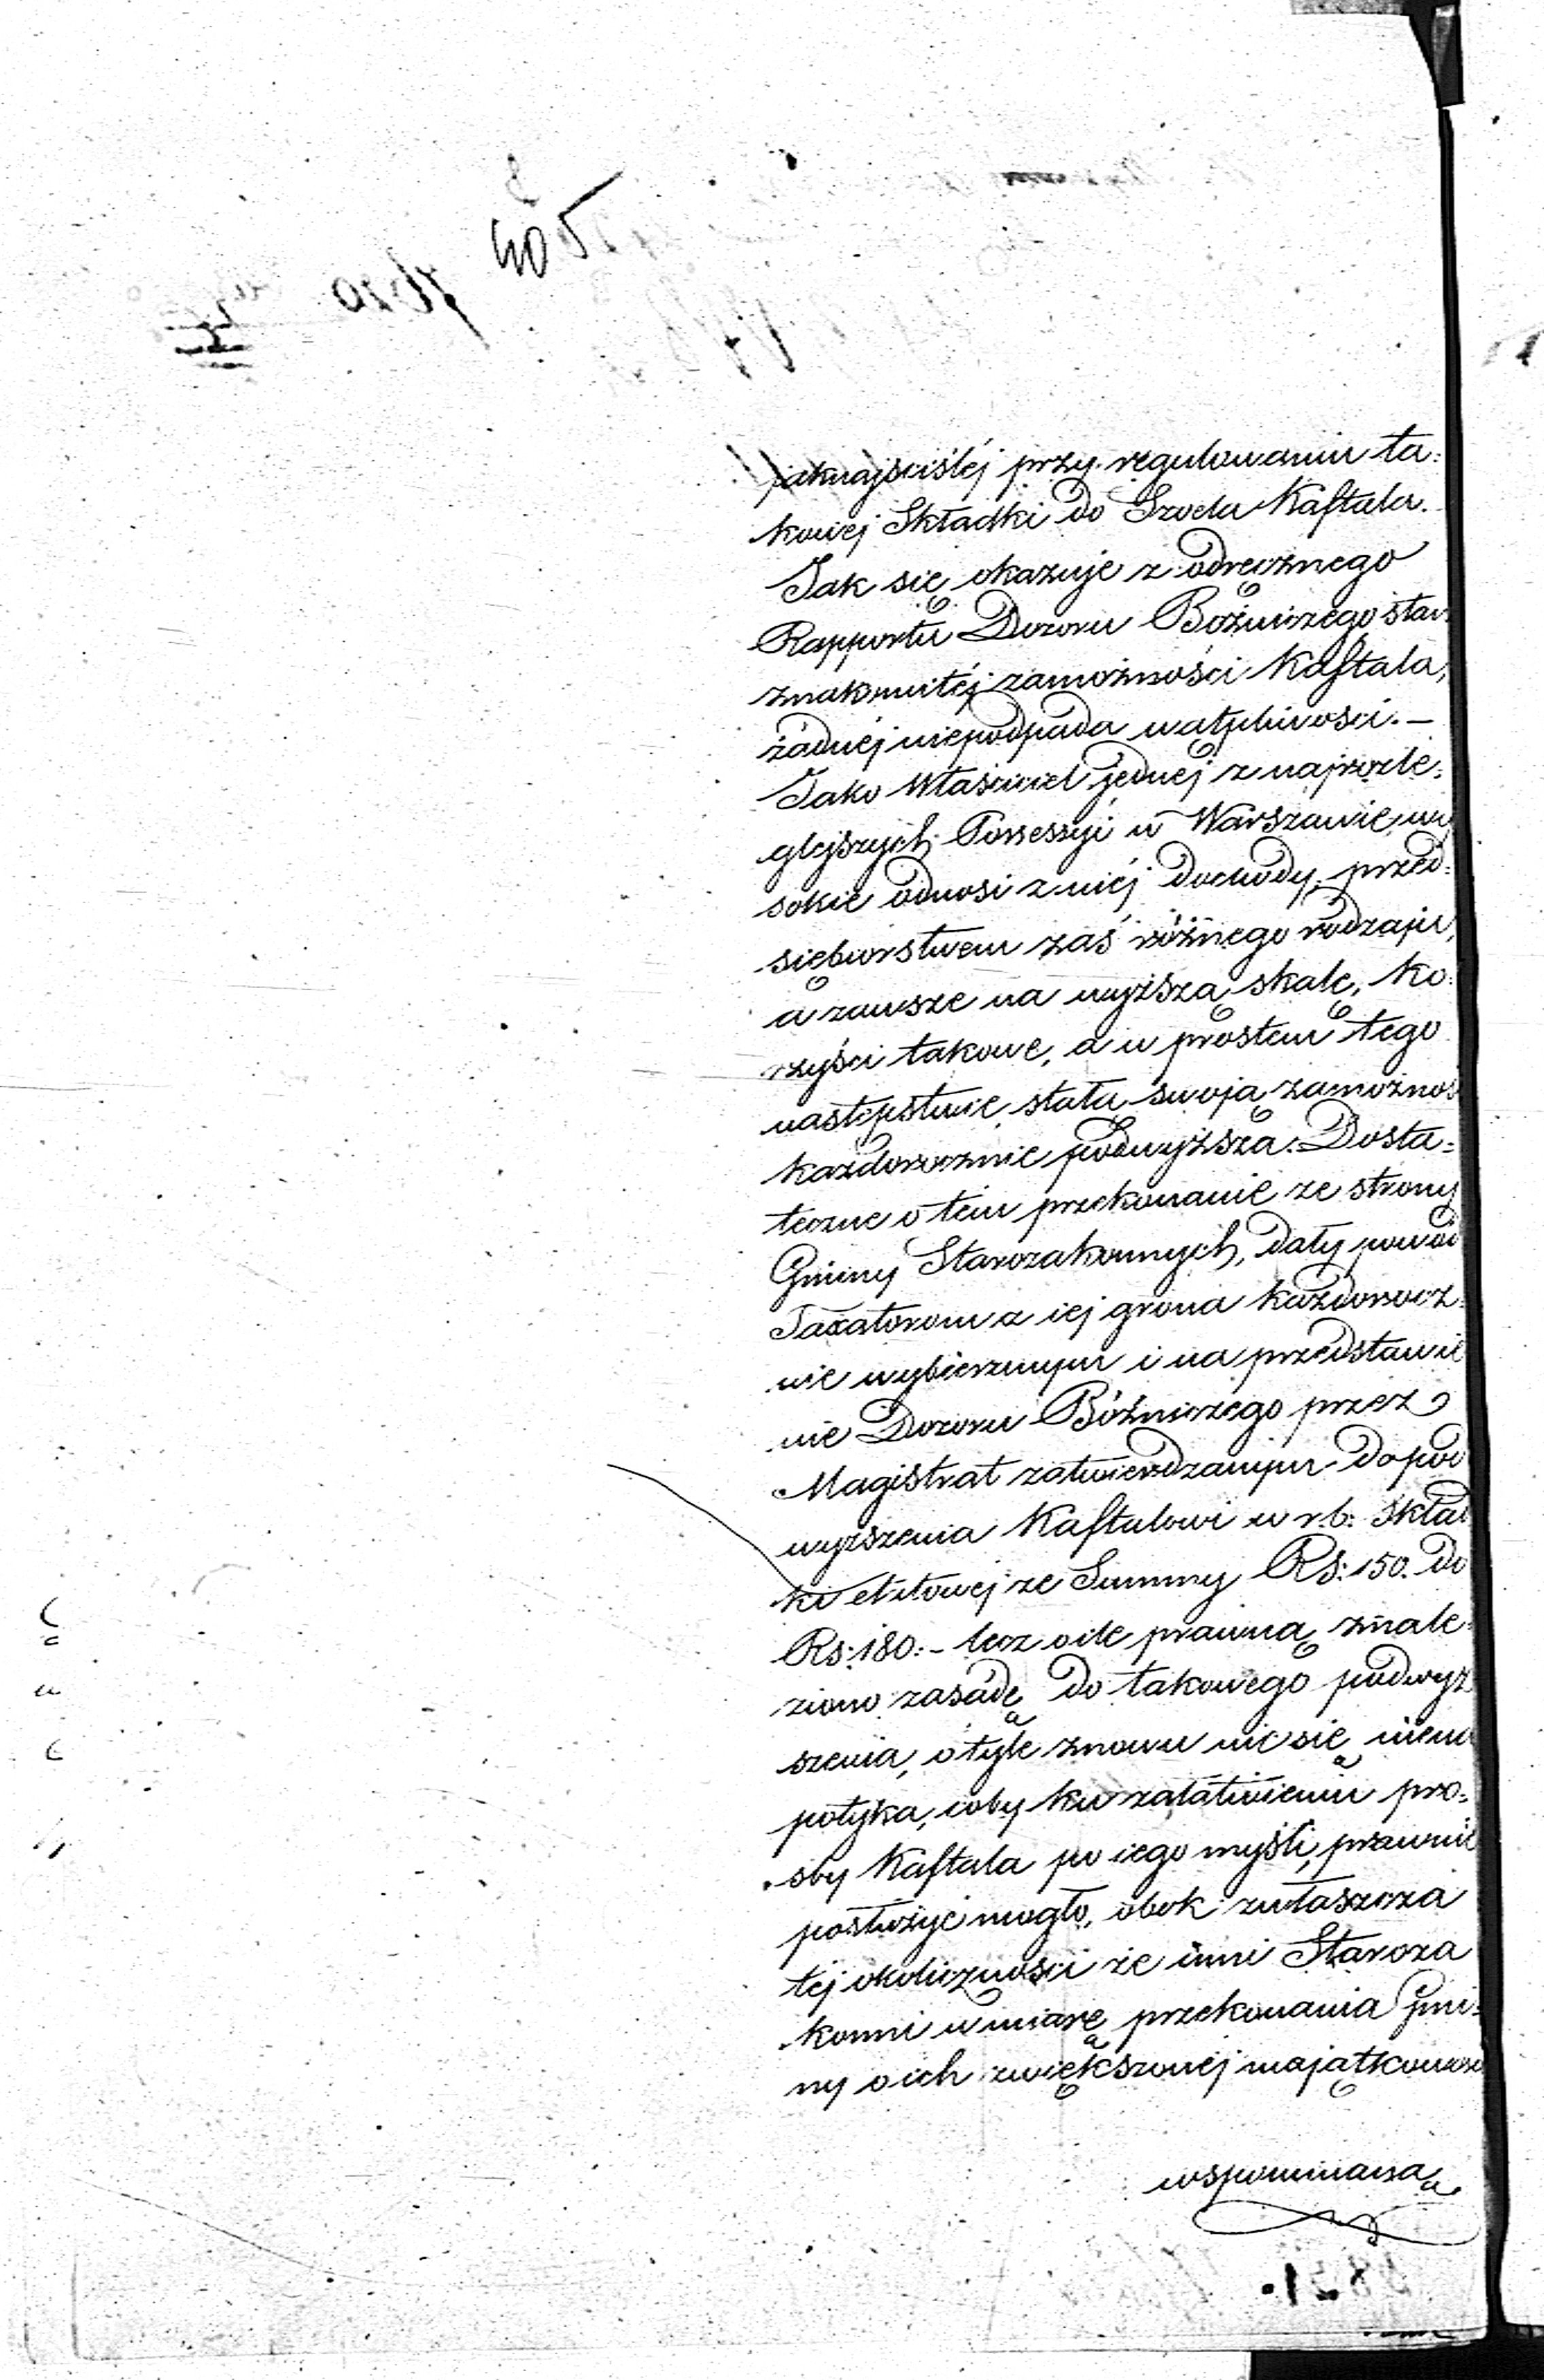 jaknajściślej przy regulowaniu ta=
kowej Składki do Sroela Kaftala.
Jak się okazuje z odręcznego
Rapportu Dozoru Bożniczego stan
znakomitéj zamożności Kaftala,
żadnéj niepodpada wątpliwości. —
Jako Właściciel jednej z najrozle=
glejszych Possessyi w Warszawie, wy
sokie odnosi z niéj dochody, przed=
siębiorstwem zaś różnego rodzaju,
a zawsze na wyższą skalę, ko=
rzyści takowe, a w prostem tego
następstwie, stałą swoją zamożnoś
każdorocznie podwyższa. Dosta=
teczne o tem przekonanie ze strony
Gminy Starozakonnych, dały powód
Taxatorom z iej grona każdorocz
nie wybieranym i na przedstawie
nie Dozoru Bóżniczego przez
Magistrat zatwierdzanym do pod
wyższenia Kaftalowi w r. b. Skład
ki etatowej ze Summy Rs: 150. do
Rs: 180. – lecz o ile prawną znale=
ziono zasadę do takowego podwyż
szenia, o tyle znowu nic się niena
potyka, coby ku załatwieniu pro=
śby Kaftala po iego myśli, prawnie
posłużyć mogło, obok zwłaszcza
téj okoliczności że inni Staroza
konni w miarę przekonania Gmi=
ny o ich zwiększonéj majątkowości
wspomnianą